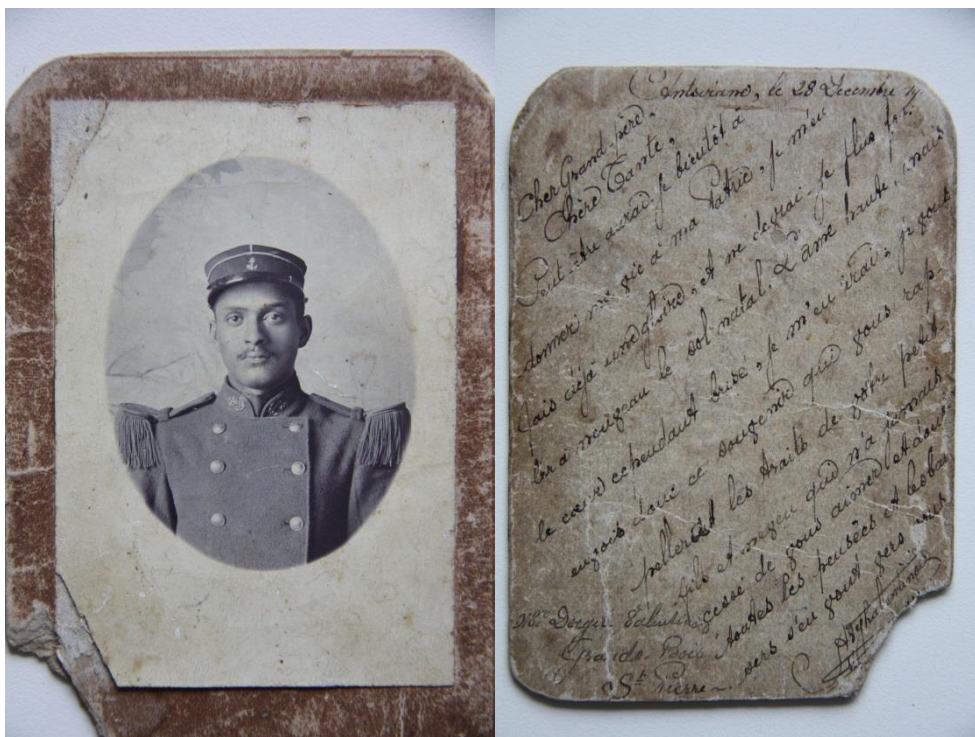 le 28 Décembre
Cher Grand-père,
Chère Tante,
Peut-être aurai-je bientôt à
donner ma vie à ma Patrie, je m'en
fais déjà une gloire, et ne devrai-je plus
à nouveau le sol natal, L'âme haute, mais
le cœur cependant brisé, je m'en irai,
donc ce souvenir qui vous rap-
pellerait les traits de votre petit
fils et neveu qui n'a jamais
cessé de vous aimer et dont
toutes les pensées et les
vers vous
Grands Bois
St Pierre